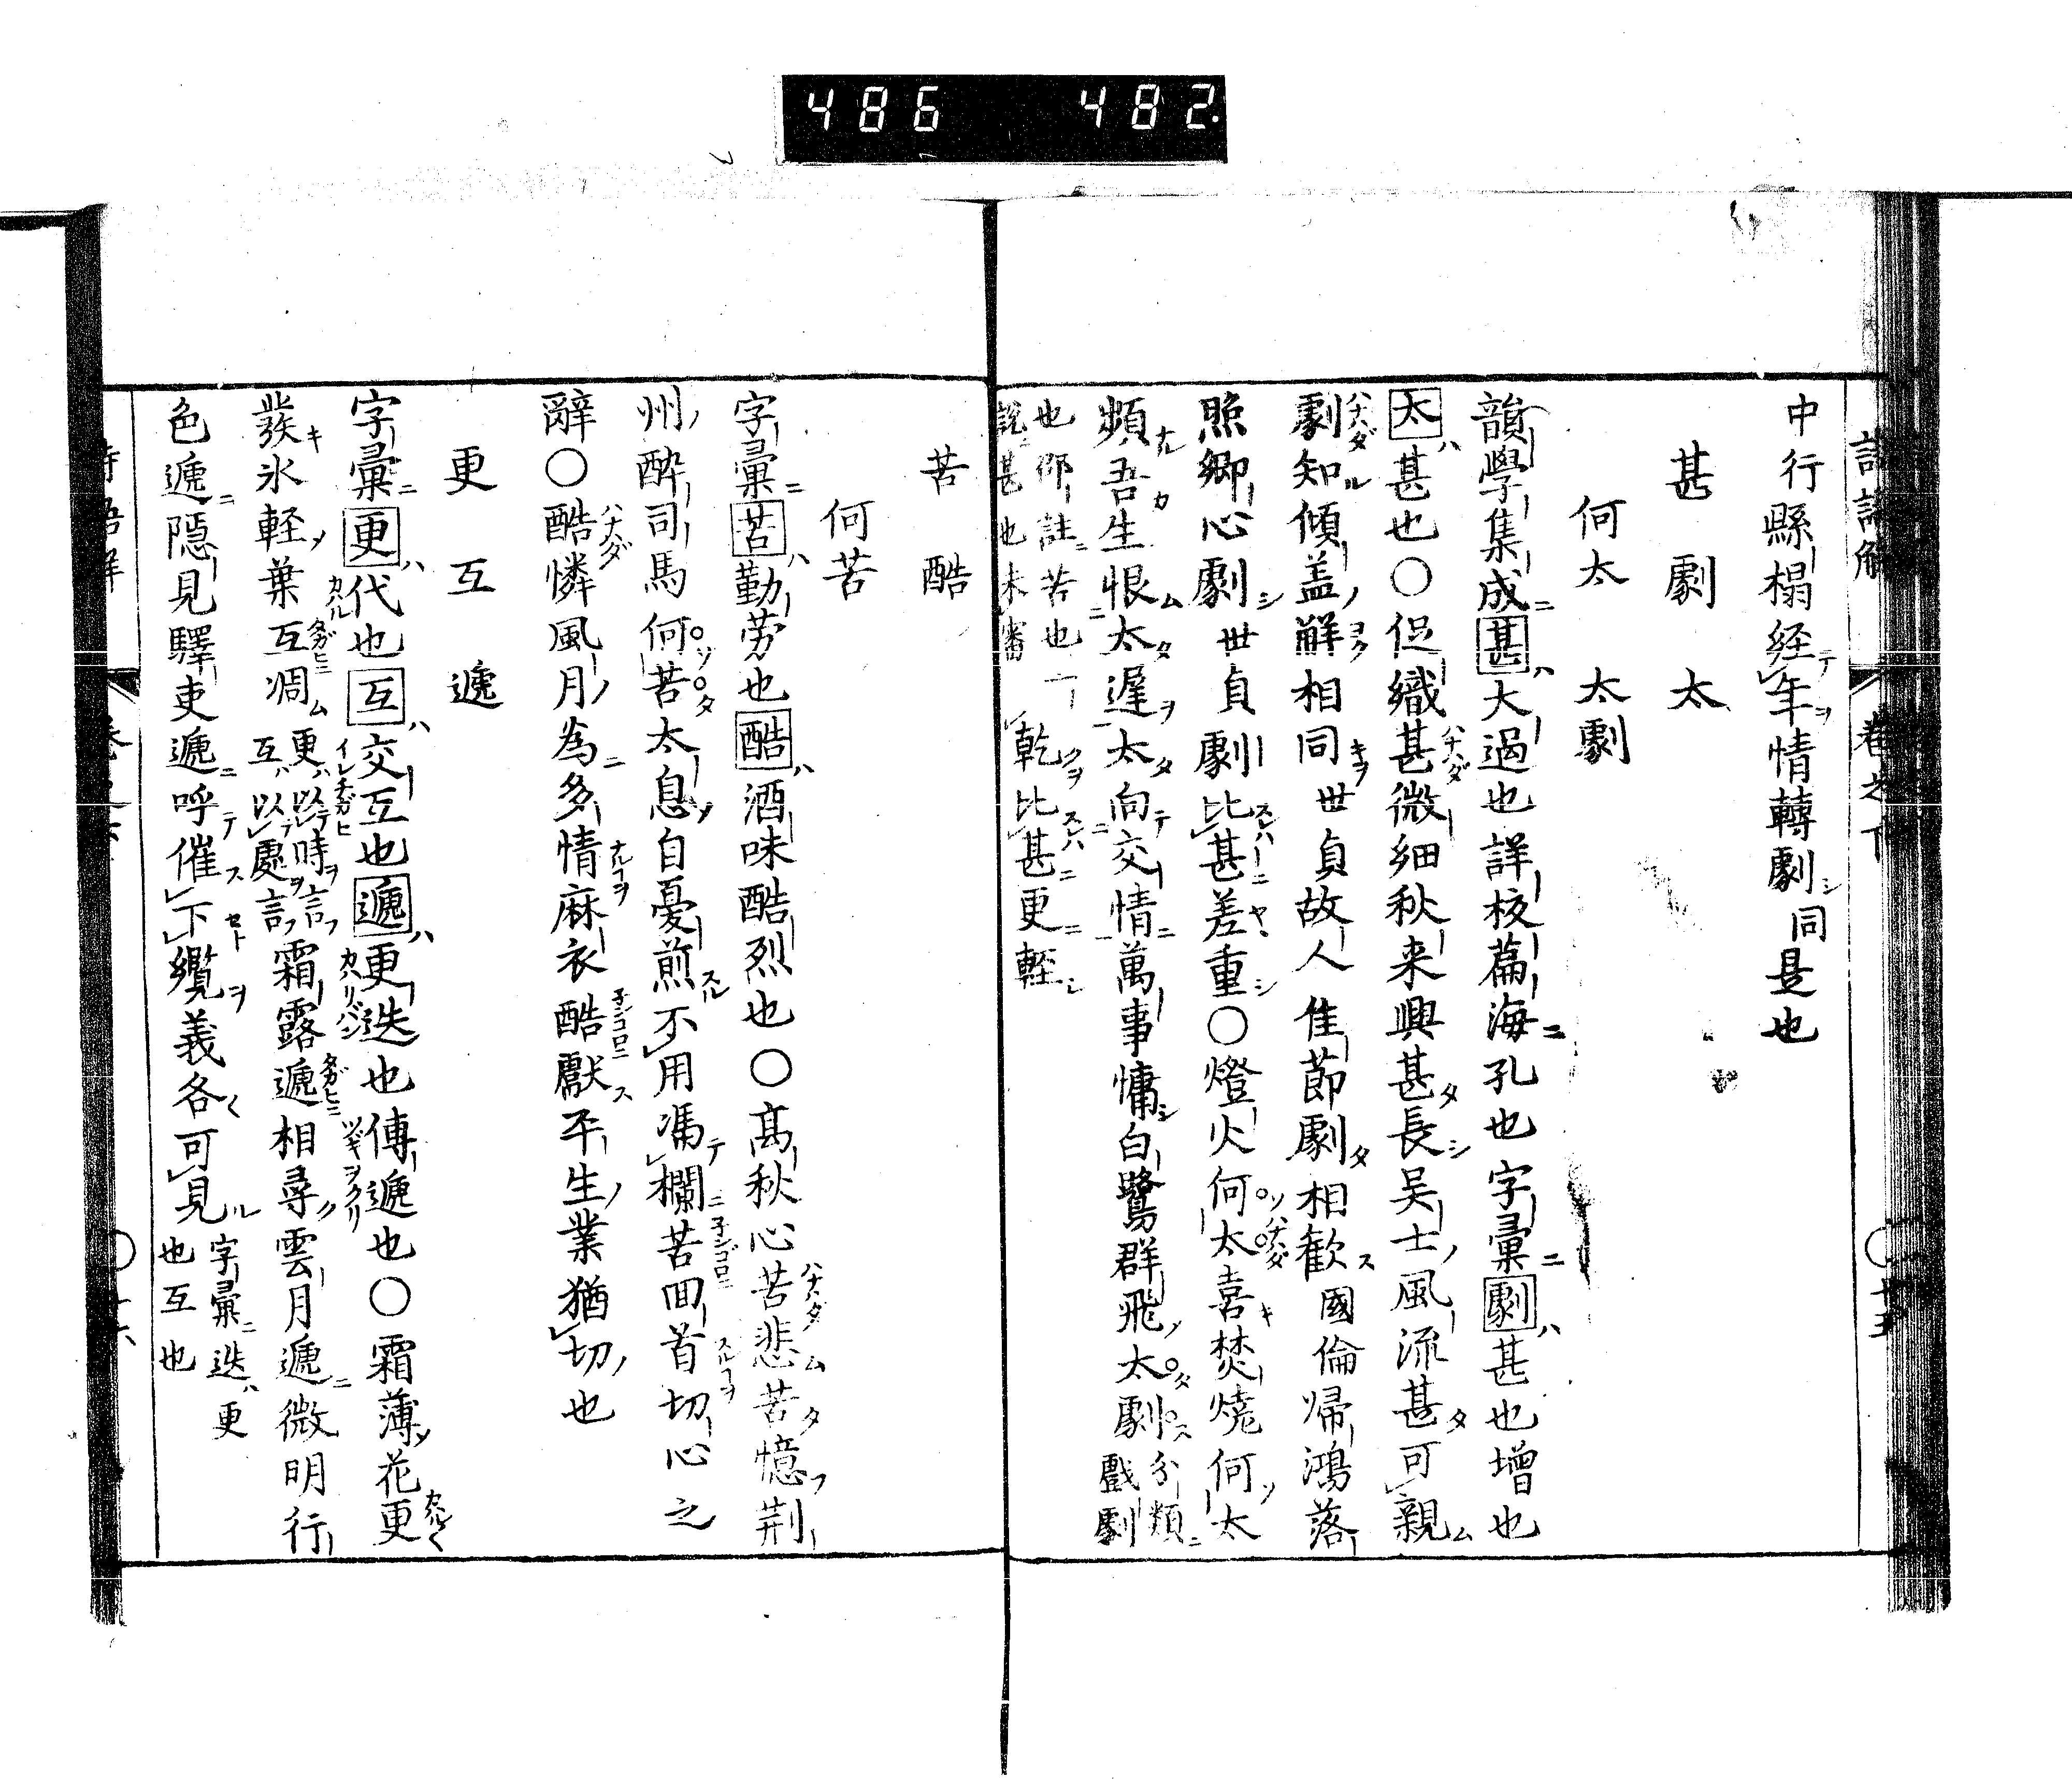 486 482.
中行縣榻経年情轉劇同是也
甚 劇 太
何太 太劇
韻學集成甚大過也詳校篇海孔也字彙劇甚也增也
太甚也〇促織甚微細秋来興甚長吴士風流甚可親
劇知傾盖觧相同世貞故人佳節劇相歓國倫帰鴻落
照郷心劇世貞劇比甚差重〇燈火何太喜焚燒何太
頻吾生恨太遅太向交情萬事慵白鷺群飛太劇分類戲劇
也邵註苦也
說甚也未審
乾比甚更輕
苦 酷
何苦
字彙苦勤劳也酷酒味酷烈也〇髙秋心苦悲苦憶荆
州酔司馬何苦太息自憂煎不用馮欄苦回首切心之
辭〇酷憐風月為多情麻衣酷獻平生業猶切也
更 互 遞
字彙更代也互交互也遞更迭也傳遞也〇霜薄花更
發氷軽葉互凋更以時言互以處言霜露遞相尋雲月遞微明行
色遞隱見驛吏遞呼催下纜義各可見字彙迭更也互也